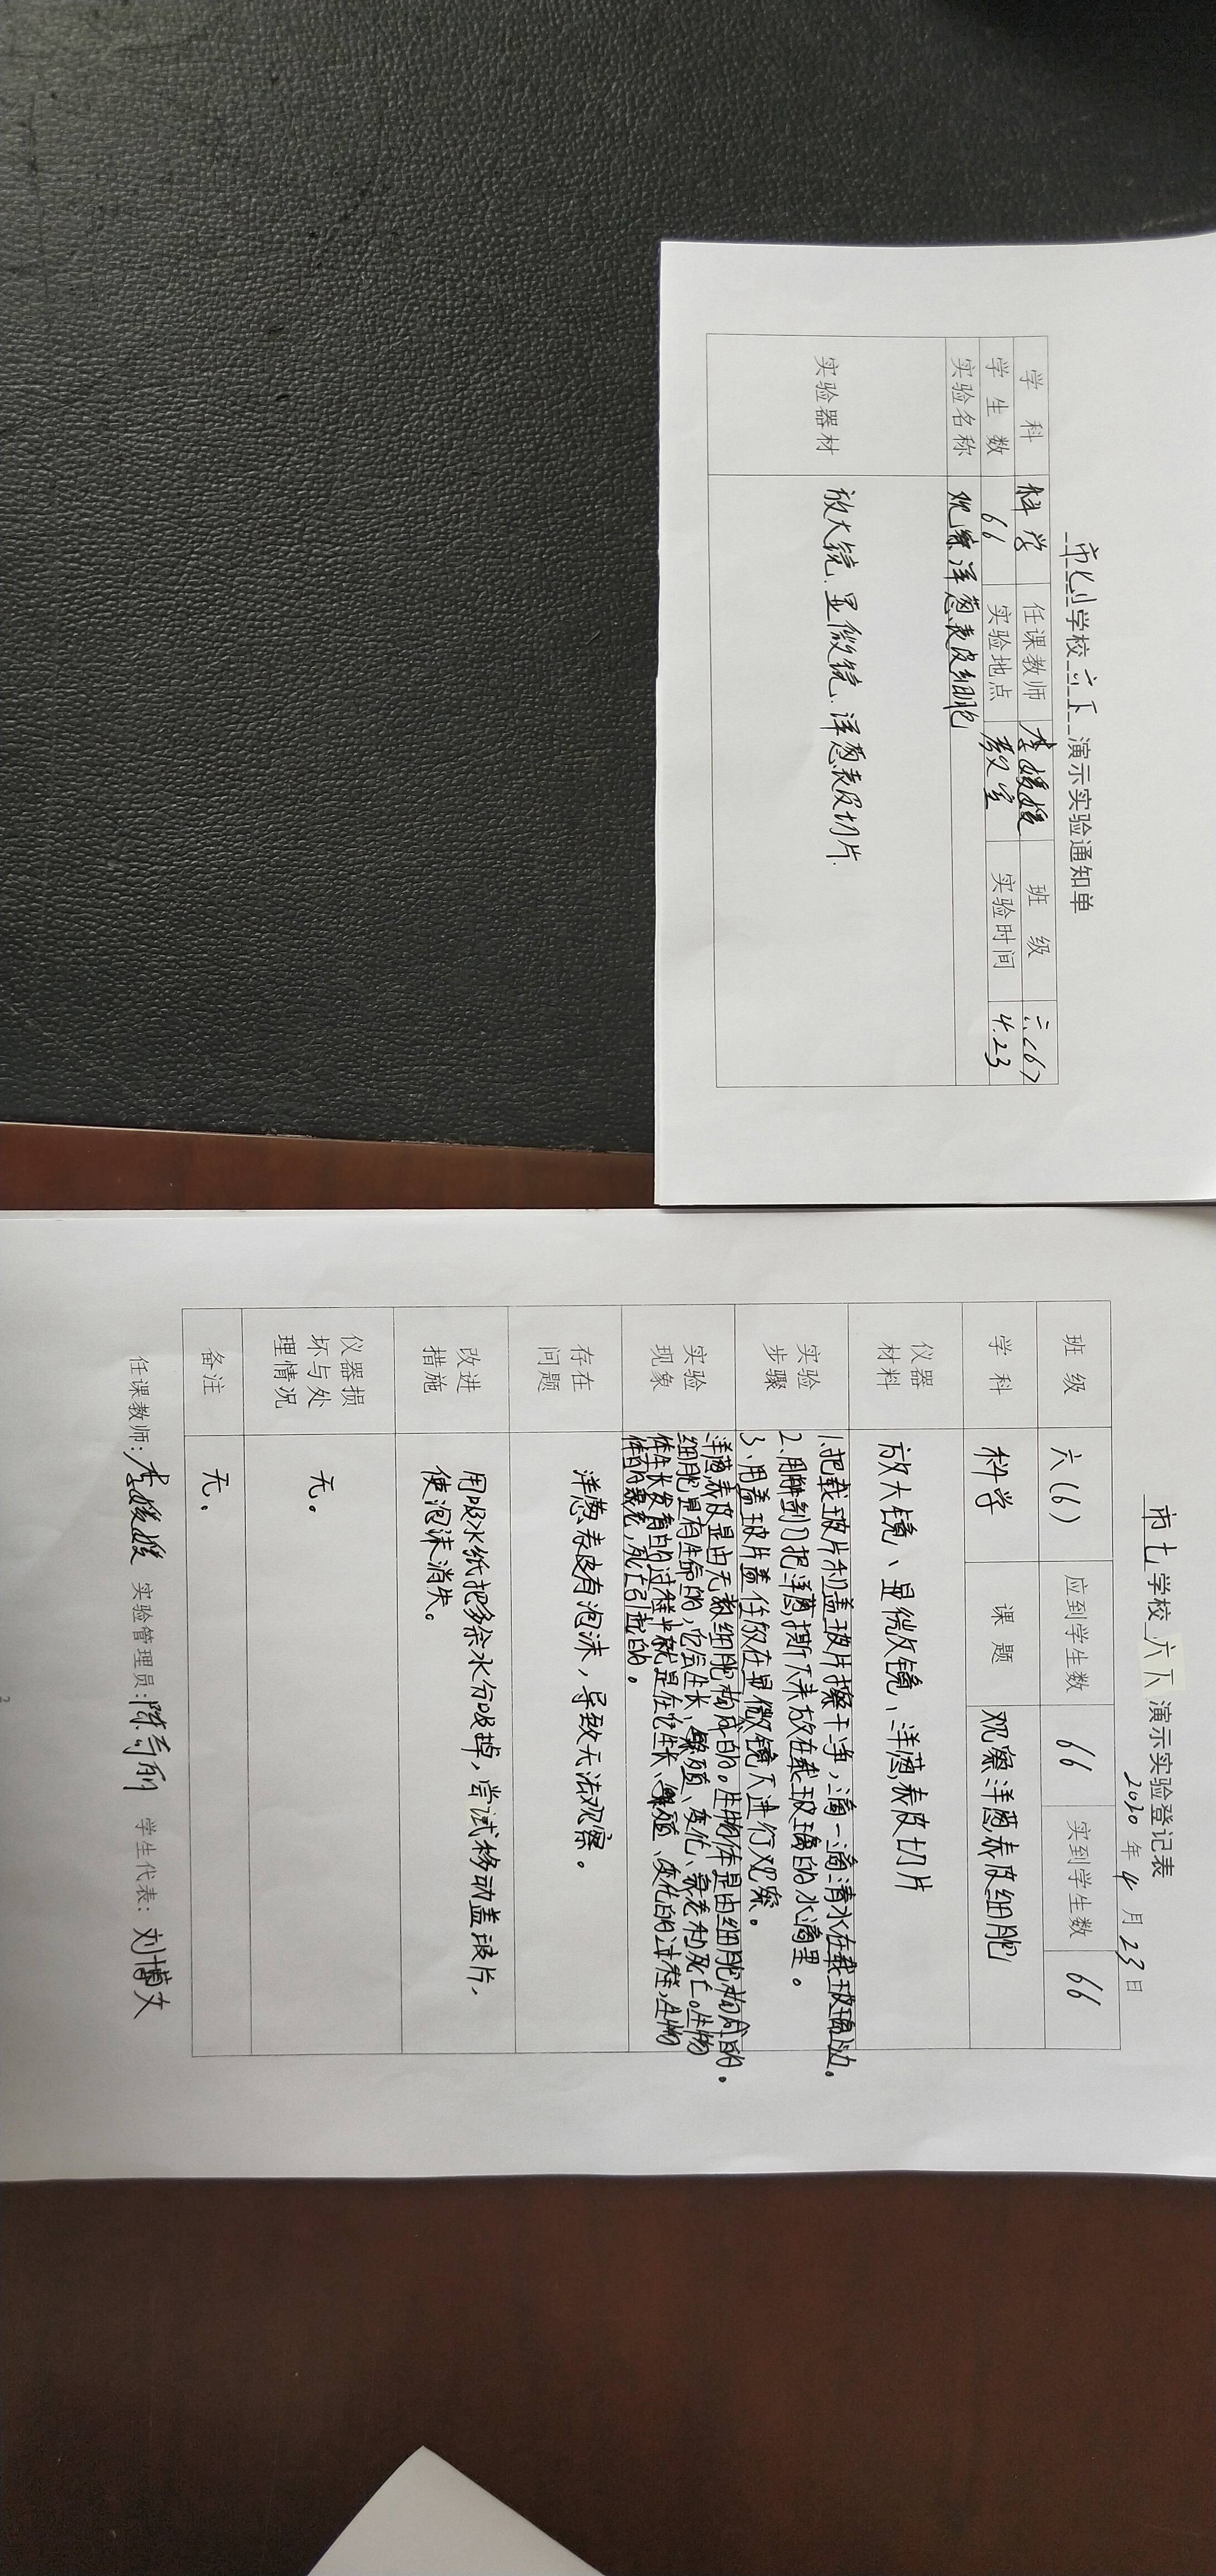 市七小学校 六下 演示实验通知单
学 科 科学 任课教师 李媛媛 班 级 六<6>
学生数 66 实验地点 教室 实验时间 4.23
实验名称 观察洋葱表皮细胞
实验器材 放大镜、显微镜、洋葱表皮切片.
市七学校 六下 演示实验登记表
2020年4月23日
班 级 六(6) 应到学生数 66 实到学生数 66
学 科 科学 课 题 观察洋葱表皮细胞
仪器
材料
放大镜、显微镜、洋葱表皮切片
实验
步骤
1.把载玻片和盖玻片擦干净,滴一滴清水在载玻璃边。
2.用解剖刀把洋葱撕下来放在载玻璃的水滴里。
3、用盖玻片盖住放在显微镜下进行观察。
实验
现象
洋葱表皮是由无数细胞构成的。生物体是由细胞构成的。
细胞是有生命的,它会生长、繁殖、变化、衰老和死亡。生物
体生长发育的过程也就是在它生长、繁殖、变化的过程,生物
体的衰老,死亡引起的。
存在
问题
洋葱表皮有泡沫,导致无法观察。
改进
措施
用吸水纸把多余水分吸掉,尝试移动盖玻片,
使泡沫消失。
仪器损
坏与处
理情况
无。
备注 无.
任课教师:李媛媛 实验管理员:陈 学生代表:刘博文
2